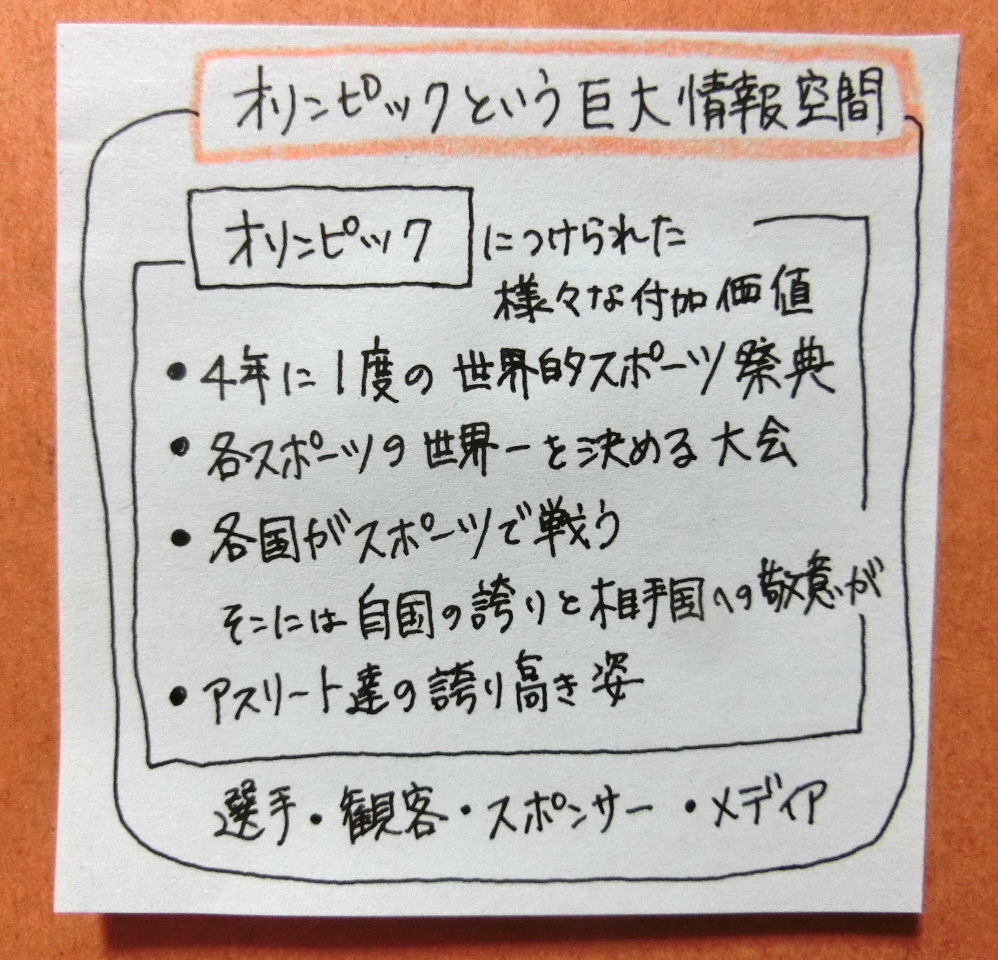 オリンピックという巨大情報空間
オリンピックにつけられた
様々な付加価値
• 4年に1度の世界的スポーツ祭典
• 各スポーツの世界一を決める大会
• 各国がスポーツで戦う
そこには自国の誇りと相手国への敬意が
• アスリート達の誇り高き姿
選手・観客・スポンサー・メディア